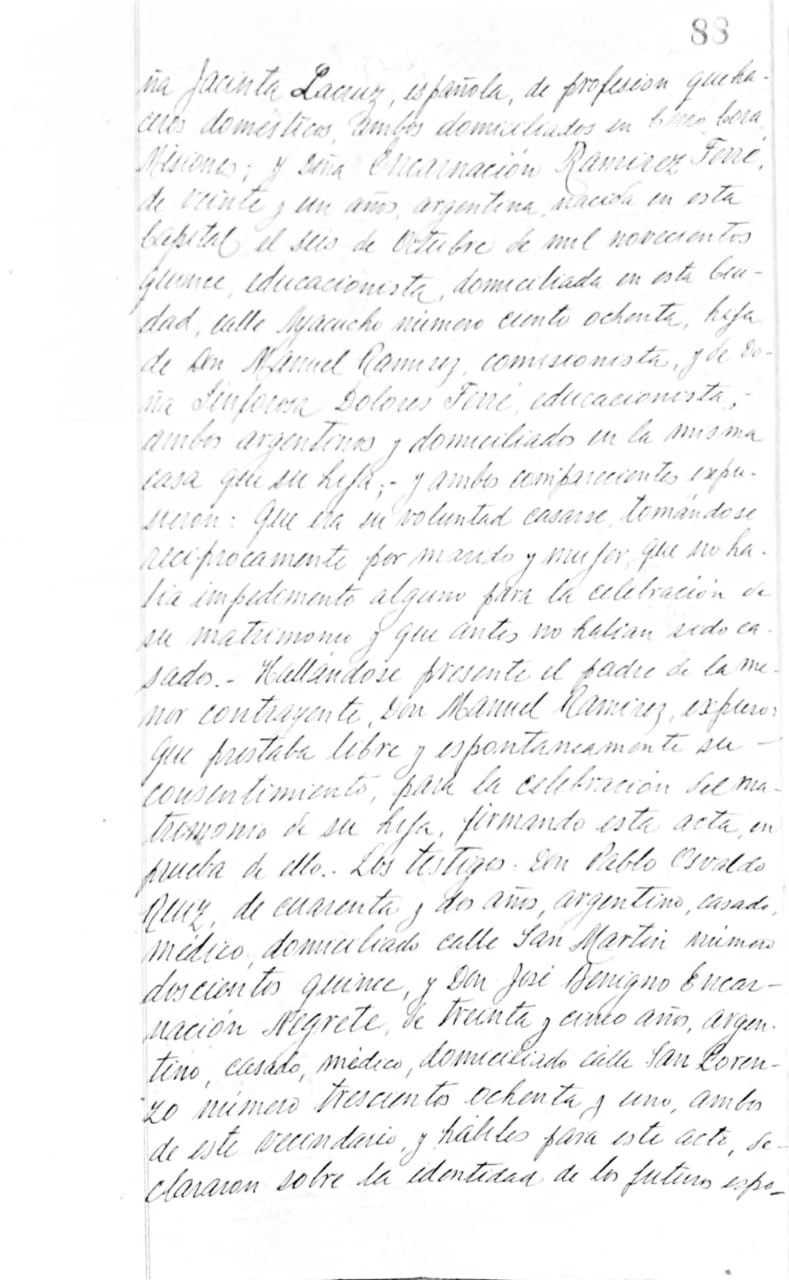 88
ña Jacinta Lacruz, española, de profesión queha-
ceres domésticos, ambos domiciliados en Cerro Corá,
Misiones; y Doña Encarnación Ramirez Ferré,
de veinte y un años, argentina, nacida en esta
Capital, el seis de Octubre de mil novecientos
quince, educacionista, domiciliada en esta Ciu-
dad, calle Ayacucho número ciento ochenta, hija
de Don Manuel Ramirez, comisionista, y de Do-
ña Sinforosa Dolores Ferré, educacionista,-
ambos argentinos y domiciliados en la misma
casa que su hija;- y ambos comparecientes expu-
sieron: Que era su voluntad casarse, tomándose
recíprocamente por marido y mujer, que no ha-
bia impedimento alguno para la celebración de
su matrimonio y que antes no habian sido ca-
sados.- Hallándose presente el padre de la me-
nor contrayente, Don Manuel Ramirez, expuso:
Que prestaba libre y espontaneamente su -
consentimiento, para la celebración del ma-
trimonio de su hija, firmando esta acta, en
prueba de ello.- Los testigos: Don Pablo Osvaldo
Ruiz, de cuarenta y dos años, argentino, casado,
médico, domiciliado calle San Martin número
doscientos quince, y Don José Benigno Encar-
nación Negrete, de treinta y cinco años, argen-
tino, casado, médico, domiciliado calle San Loren-
zo número trescientos ochenta y uno, ambos
de este vecindario, y hábiles para este acto, de-
clararon sobre la identidad de los futuros espo-